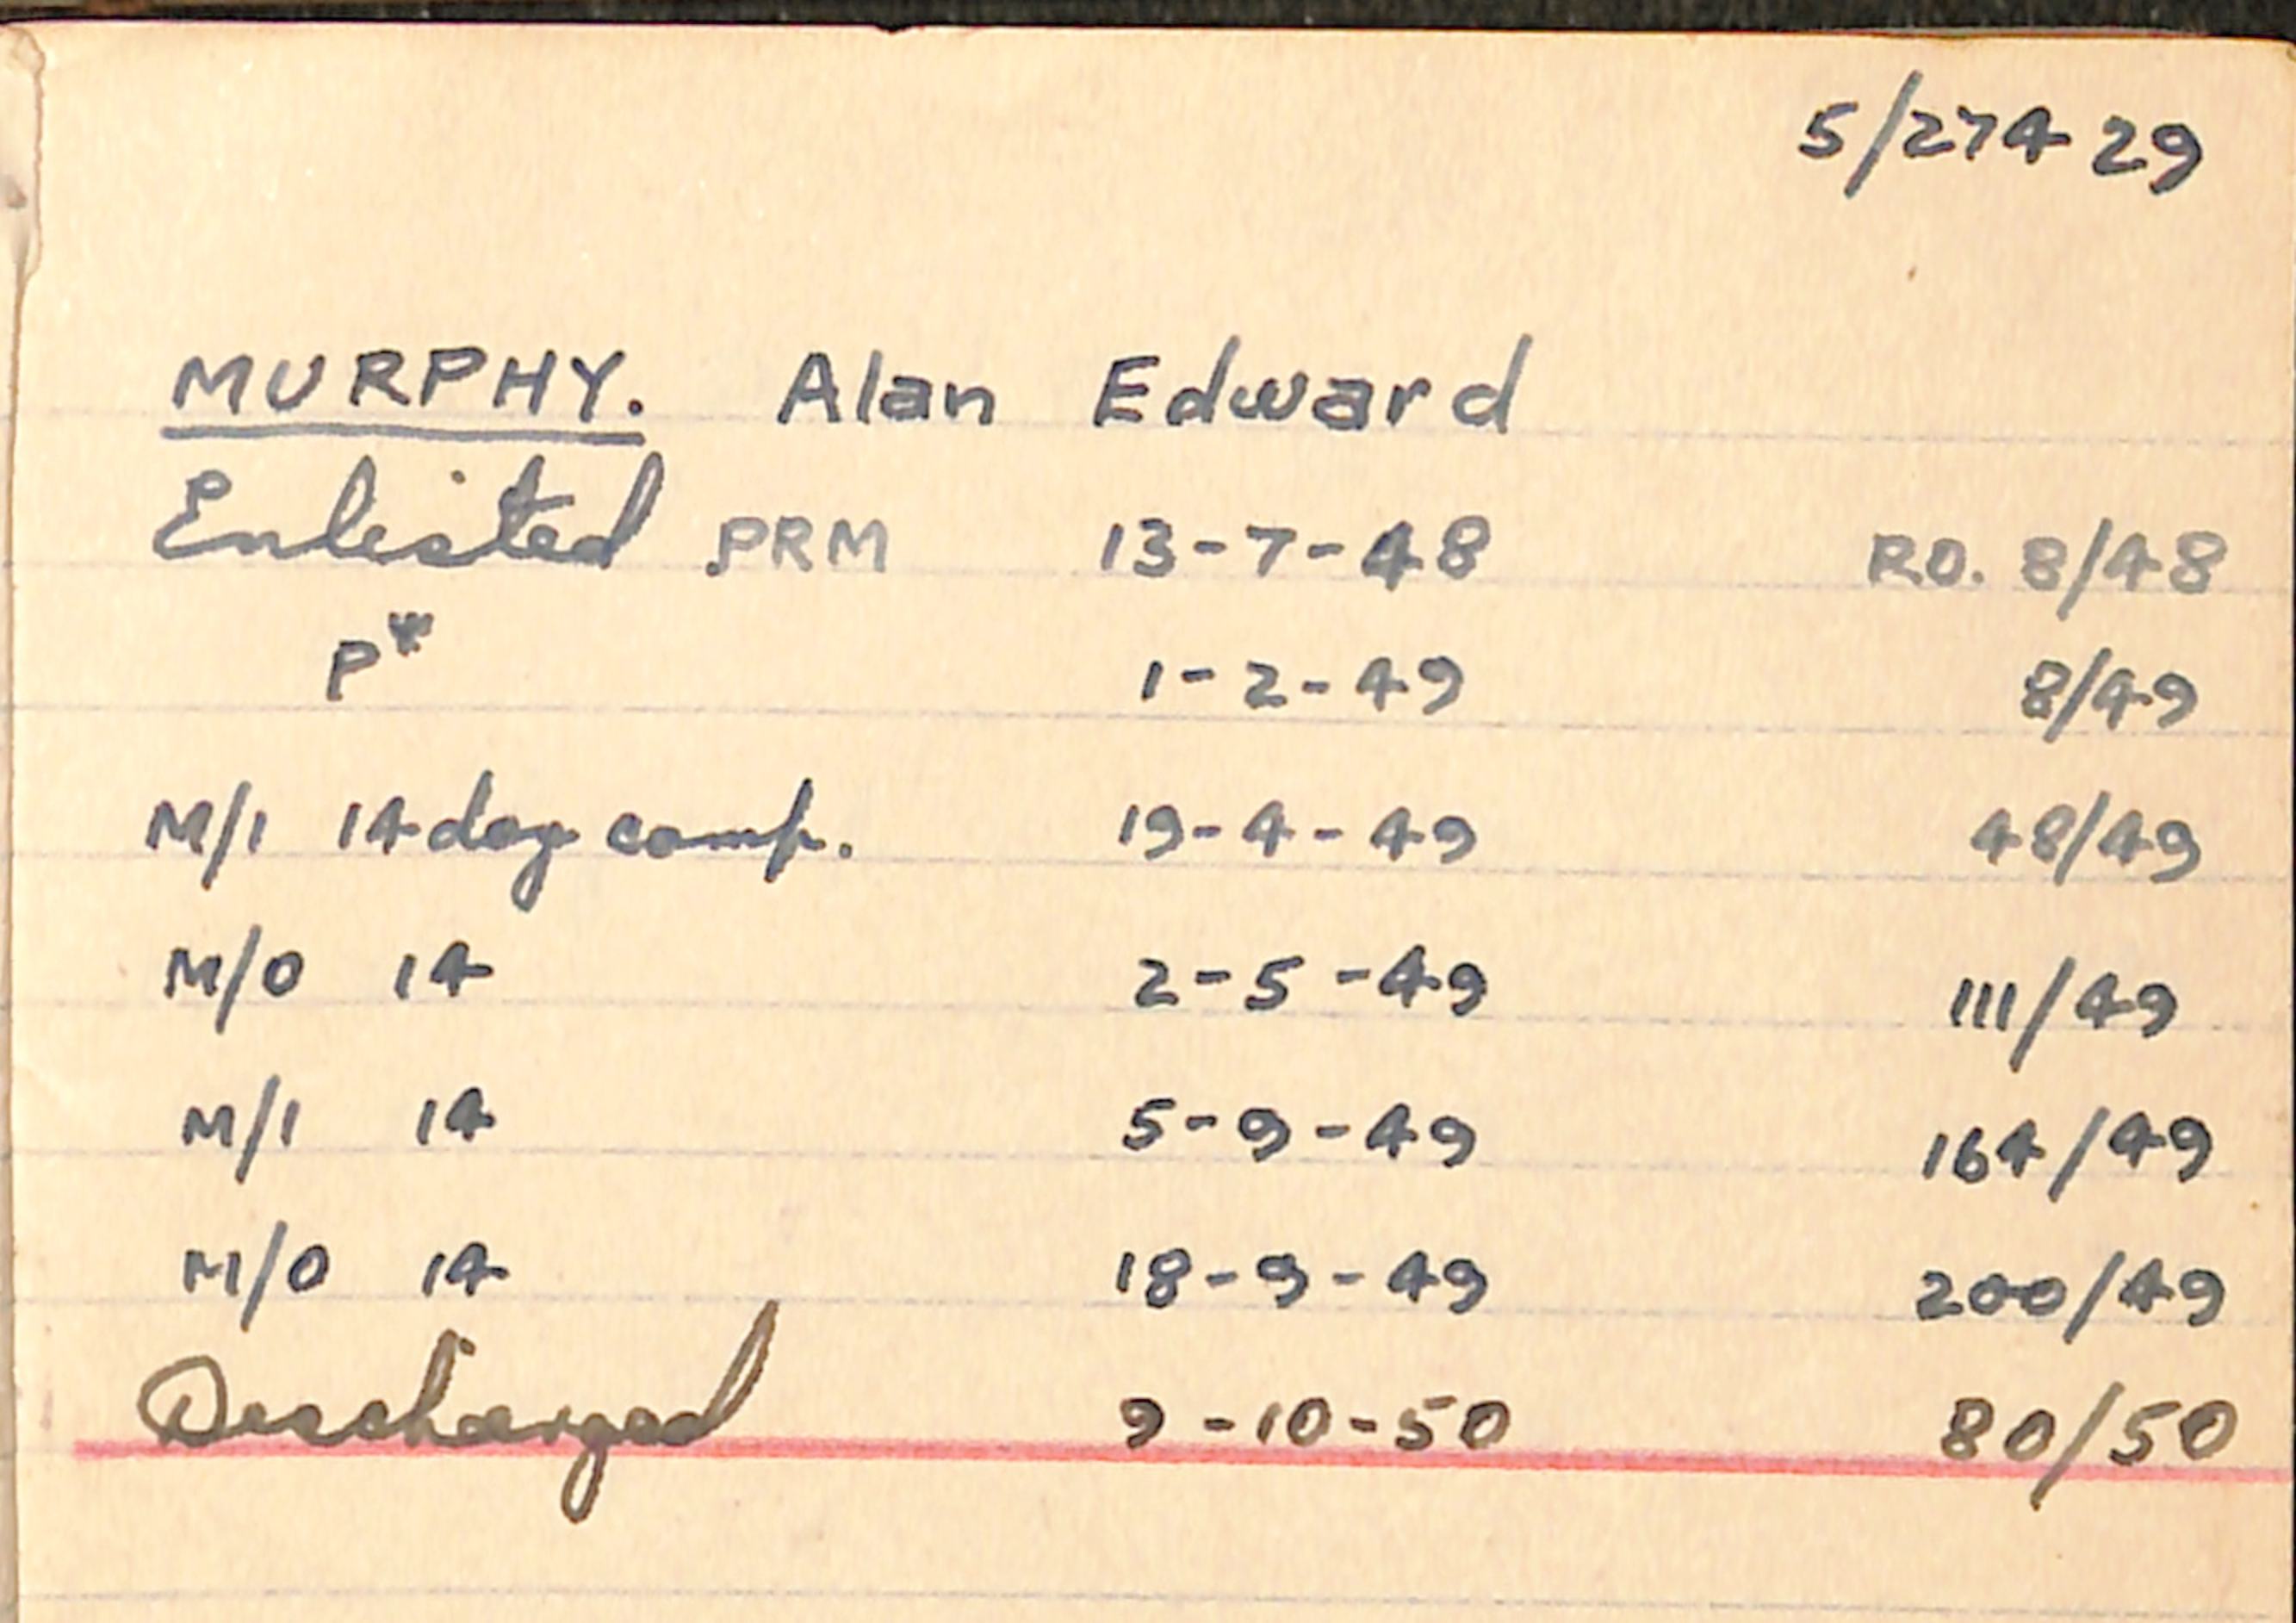 5/27429
MURPHY. Alan Edward
Enlisted PRM 13-7-48 R.O. 8/48
P 1-2-49 8/49
M/1 14 day camp. 19-4-49 48/49
M/O 14 2-5-49 111/49
M/1 14 5-9-49 164/49
M/O 14 18-9-49 200/49
Discharged 9-10-50 80/50